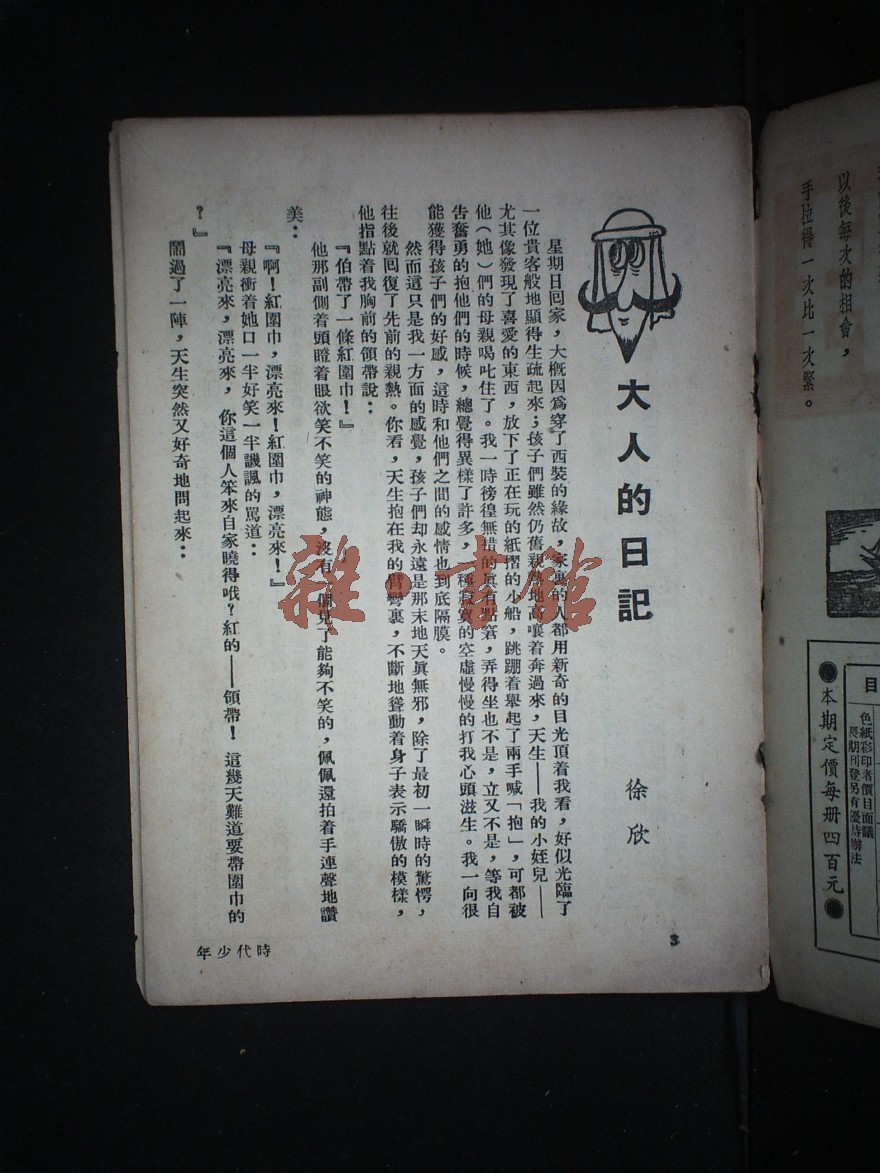 大人的日記
徐欣
星期日囘家，大槪因爲穿了西裝的緣故，家裏的人都用新奇的目光頂着我看，好似光臨了
一位貴客般地顯得生疏起來；孩子們雖然仍舊親熱地高嚷着奔過來，天生——我的小姪兒——
尤其像發現了喜愛的東西，放下了正在玩的紙摺的小船，跳蹦着舉起了兩手喊「抱」，可都被
他（她）們的母親喝叱住了。我一時徬徨無措的眞有點窘，弄得坐也不是，立又不是，等我自
告奮勇的抱他們的時候，總覺得異樣了許多，一種寂寞的空虛慢慢的打我心頭滋生。我一向很
能獲得孩子們的好感，這時和他們之間的感情也到底隔膜。
然而這只是我一方面的感覺，孩子們却永遠是那末地天眞無邪，除了最初一瞬時的驚愕，
往後就囘復了先前的親熱。你看，天生抱在我的臂彎裏，不斷地聳動着身子表示驕傲的模樣，
他指點着我胸前的領帶說：
『伯帶了一條紅圍巾！』
他那副側着頭瞪着眼欲笑不笑的神態，沒有一個見了能夠不笑的，佩佩還拍着手連聲地讚
美：
『啊！紅圍巾，漂亮來！紅圍巾，漂亮來！』
母親衝着她口一半好笑一半譏諷的駡道：
『漂亮來，漂亮來，你這個人笨來自家曉得哦？紅的——領帶！這幾天難道要帶圍巾的
？』
鬧過了一陣，天生突然又好奇地問起來：
3
時代少年
以後每次的相會，
手拉得一次比一次緊。
目
色紙彩印者價目面議
長期刊登另有優待辦法
●本期定價每册四百元●
雜·書館